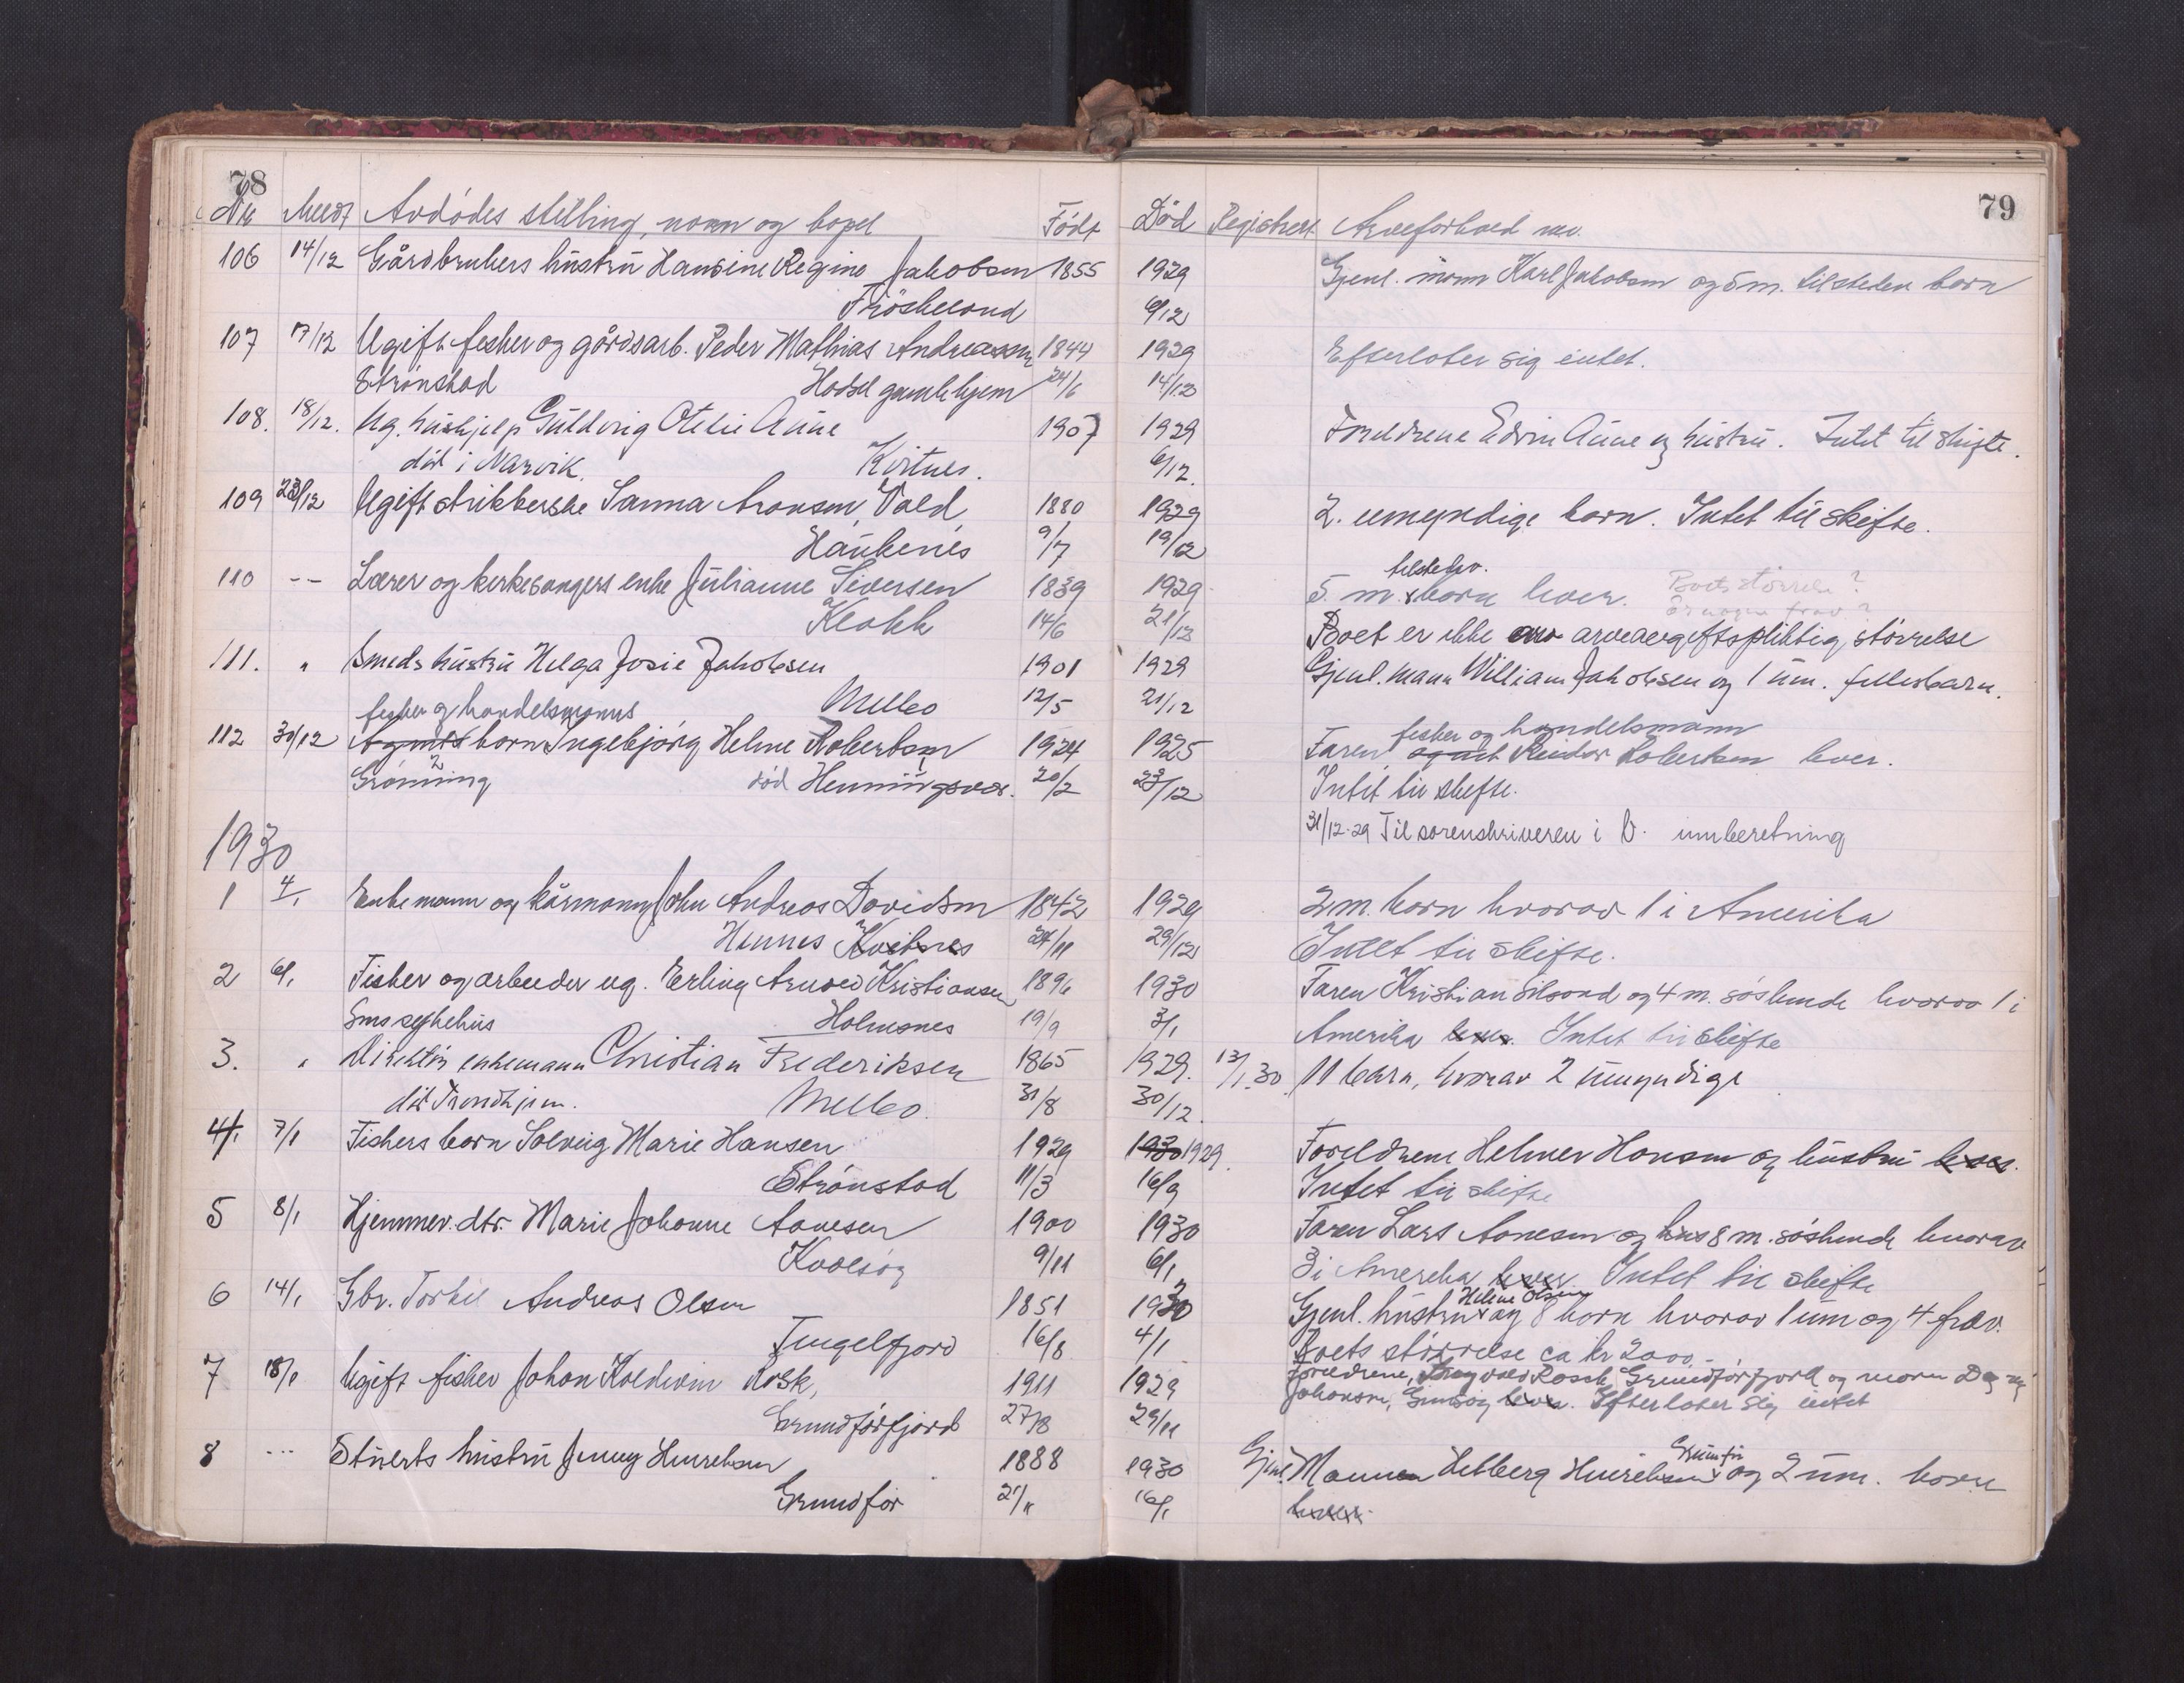 78
79
Nr Meldt Avdødes stilling, navn og bopel Født Død Registrert Arveforhold mv.
106 14/12 Gårdbrukers hustru Hansine Regine Jakobsen 1855 1929 Gjenl. mann Karl Jakobsen og 5 m. tilstede barn
Frøskeland 6/12
107 17/12 Ugift fisker og gårdsarb. Peder Mathias Andreassen 1844 1929 Efterlater sig intet.
Strønstad Hadsel gamlehjem 24/6 14/12
108. 18/12. Ug. hushjelp Guldvig Otelie Aune 1907 1929 Foreldrene Edvin Aune og hustru. Intet til skifte.
død i Narvik. Kvitnes. 6/12.
109 23/12 Ugift strikkerske Sanna Aronsen, Vold, 1880 1929 2. umyndige barn. Intet til skifte.
Haukenes 9/7 19/12
tilstedev.
110 -- Lærer og kirkesangers enke Julianne Sivertsen 1839 1929 5. m. barn lever. Boets størrelse?
Klakk 14/6 21/12 Boet er ikke arveavgiftspliktig størrelse
111. " Smeds hustru Helga Josie Jakobsen 1901 1929 Gjenl. mann William Jakobsen og 1 um. fellesbarn.
fisker og handelsmanns Melbo 12/5 21/12
fisker og handelsmann
112 30/12 Agents barn Ingebjørg Helene Robertsen 1924 1925 Faren, agent Reidar Robertsen lever.
Grønning død Henningsvær. 20/2 23/12 Intet til skifte.
31/12-29 Til sorenskriveren i V. innberetning
1930
1 4/1 Enkemann og kårmann John Andreas Davidsen 1842 1929 2 m. barn hvorav 1 i Amerika
Hennes Kvitnes 24/11 29/12 Intet til skifte.
2 6/1 Fisker og arbeider ug. Erling Arnved Kristiansen 1896 1930 Faren Kristian Silsand og 4 m. søskende hvorav 1 i
Sms sykehus Holmsnes 19/9 3/1 Amerika lever. Intet til skifte
3. " Direktør enkemann Christian Frederiksen 1865 1929. 13/1.30 11 barn, hvorav 2 umyndige
død Trondhjem. Melbo. 31/8 30/12.
4/1 7/1 Fiskers barn Solveig Marie Hansen 1929 1930 1929. Foreldrene Helmer Hansen og hustru lever.
Strønstad 11/3 16/9 Intet til skifte
5 8/1 Hjemmev. dtr. Marie Johanne Aanesen 1900 1930 Faren Lars Aanesen og 8 m. søskende hvorav
Kvalsøy 9/11 6/1 3 i Amerika lever. Intet til skifte
Helene Olsen
6 14/1 Gbr. Torkil Andreas Olsen 1851 1930 Gjenl. hustru og 8 barn hvorav 1 um og 4 frav.
Tengelfjord 16/8 4/1 Boets størrelse ca kr 2000 -
7 18/1 Ugift fisker Johan Koldevin Rosk, 1911 1929 foreldrene, Rosck Grundforfjord og moren Dagny
Grundforfjord 27/8 29/11 Johansen, Gimsøy lever. Efterlater sig intet
Grunfør
8 --- Stuerts hustru Jenny Henriksen 1888 1930 Gjenl. Mannen Hilberg Henriksen og 2 um. barn
Grundfør 21/11 16/1 lever.